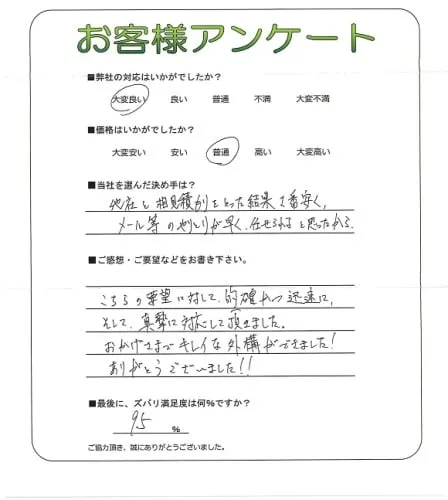 お客様アンケート
■弊社の対応はいかがでしたか?
大変良い 良い 普通 不満 大変不満
■価格はいかがでしたか?
大変安い 安い 普通 高い 大変高い
■当社を選んだ決め手は?
他社と相見積りをとった結果1番安く、
メール等のやりとりが早く、任せられると思ったから。
■ご感想・ご要望などをお書き下さい。
こちらの要望に対して、的確かつ迅速に、
そして、真摯に対応して頂きました。
おかげさまでキレイな外構ができました!
ありがとうございました!!
■最後に、ズバリ満足度は何%ですか?
95 %
ご協力頂き、誠にありがとうございました。